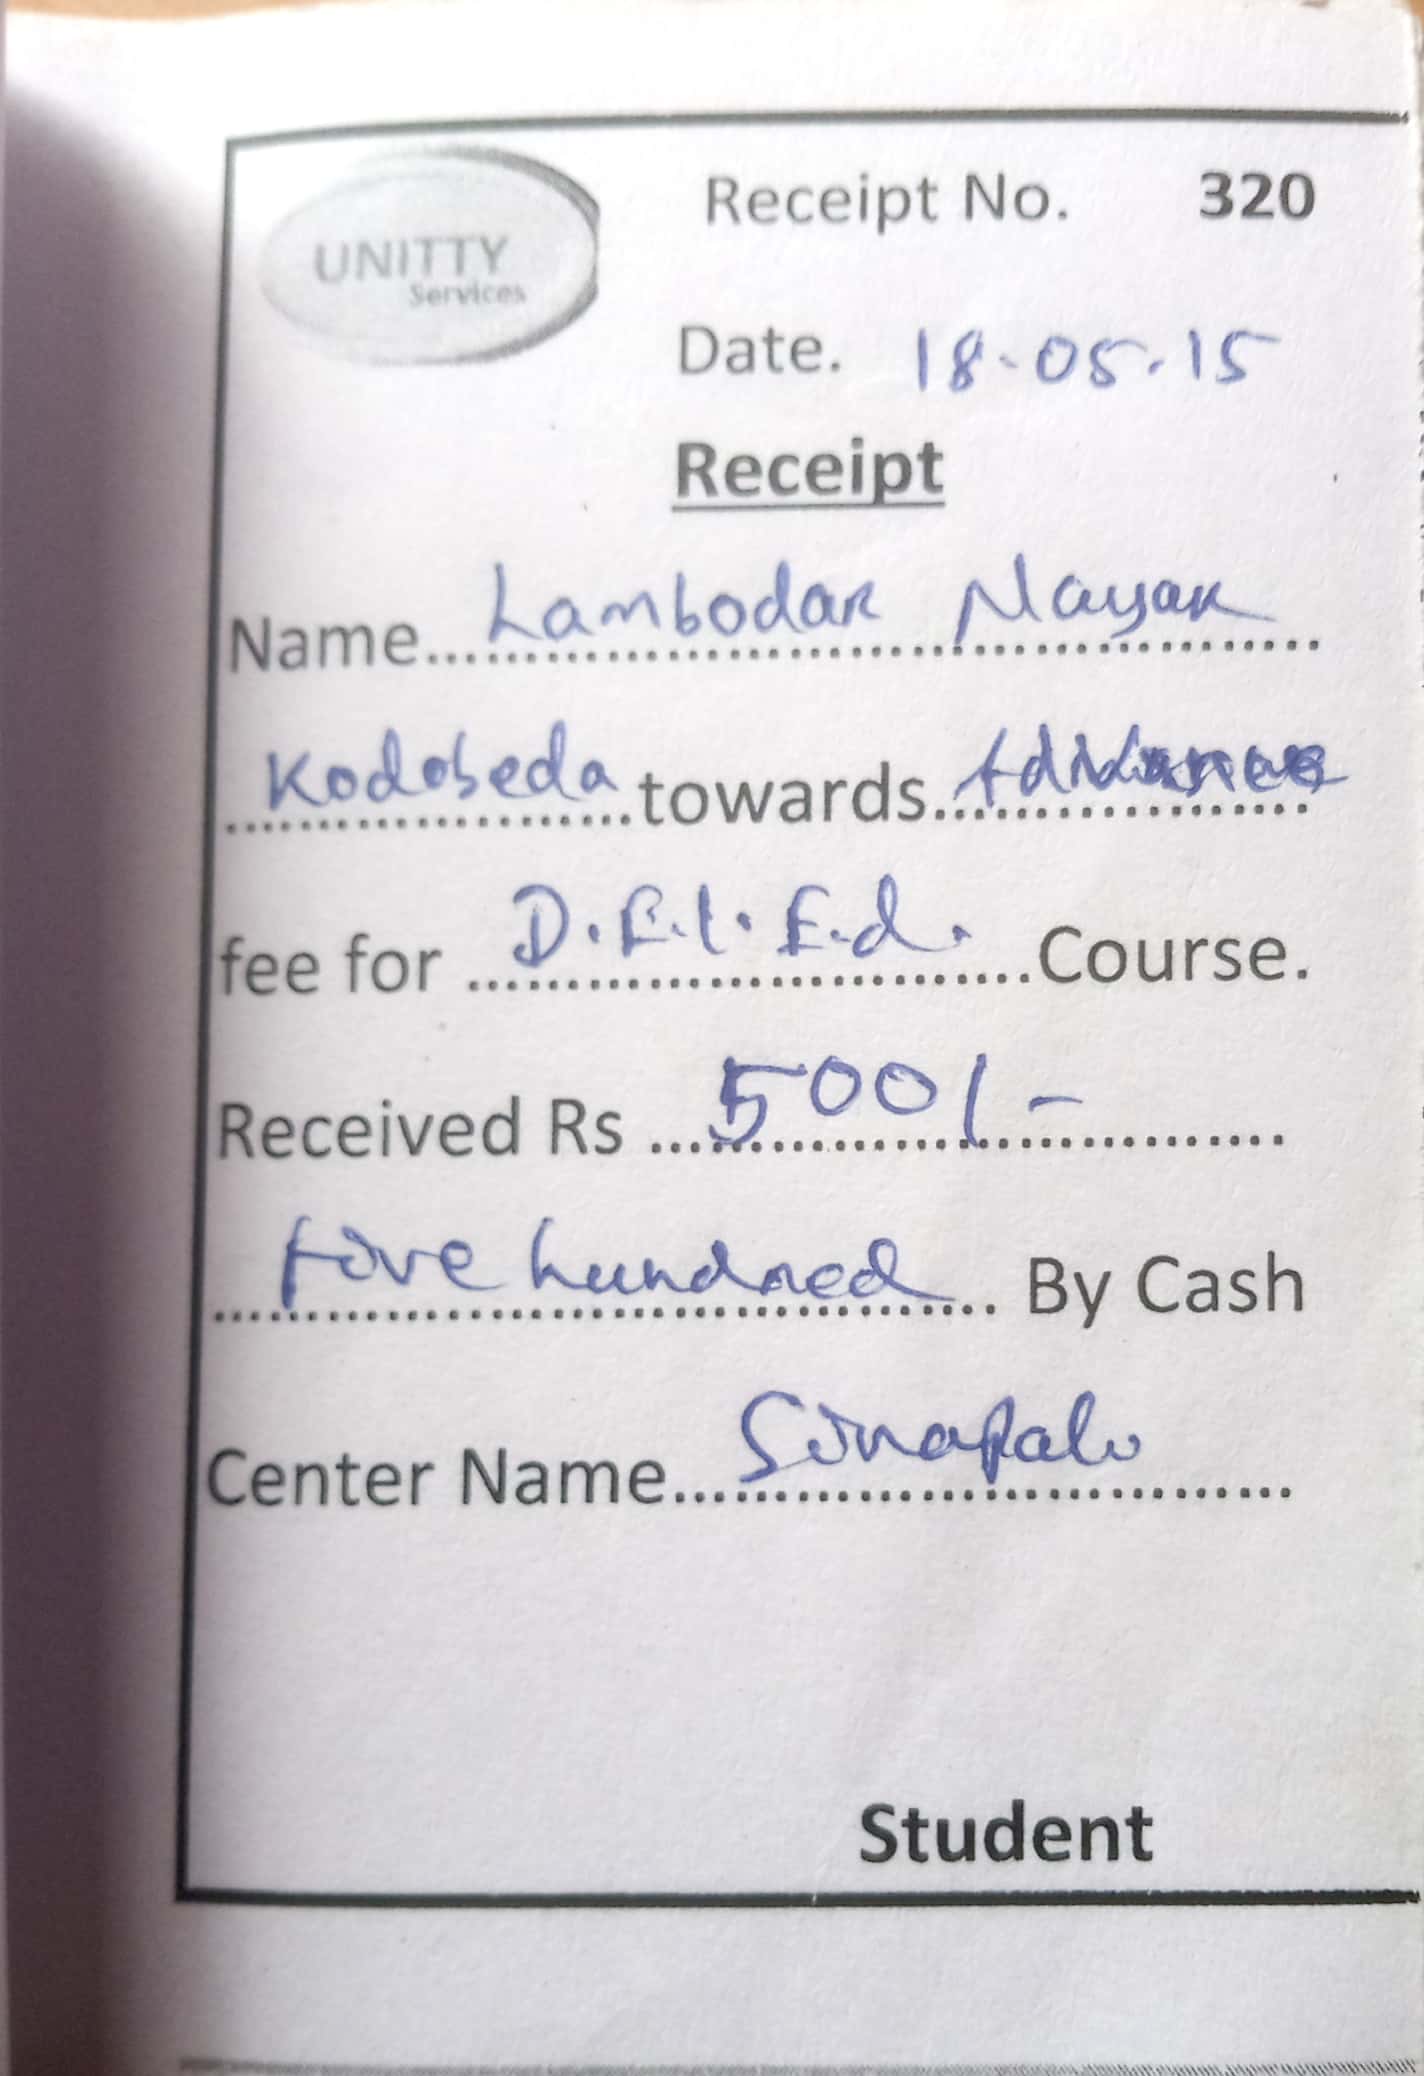 UNITTY
Services
Receipt No. 320
Date. 18-05.15
Receipt
Name Lambodar Nayak
Kodobeda towards Advance
fee for D.El.Ed. Course.
Received Rs 500/-
five hundred By Cash
Center Name Sinapali
Student